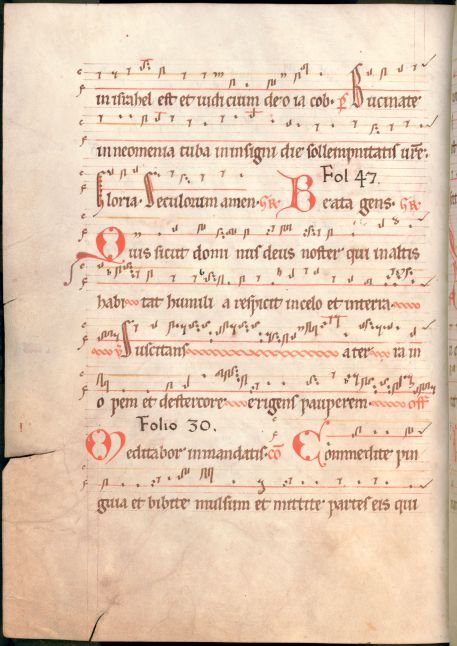 in israhel est et iudicium deo iacob. Bucinate
in neomenia tuba in insigni die sollempnitatis vr̄e.
Fol 47.
Gloria. Seculorum amen. Beata gens.
Quis sicut dominus deus noster qui in altis
habitat humilia respicit in celo et in terra
Suscitans a terra in
opem et de stercore erigens pauperem
Folio 30.
Meditabor in mandatis. Commedite pin
guia et bibite mulsum et mittite partes eis qui